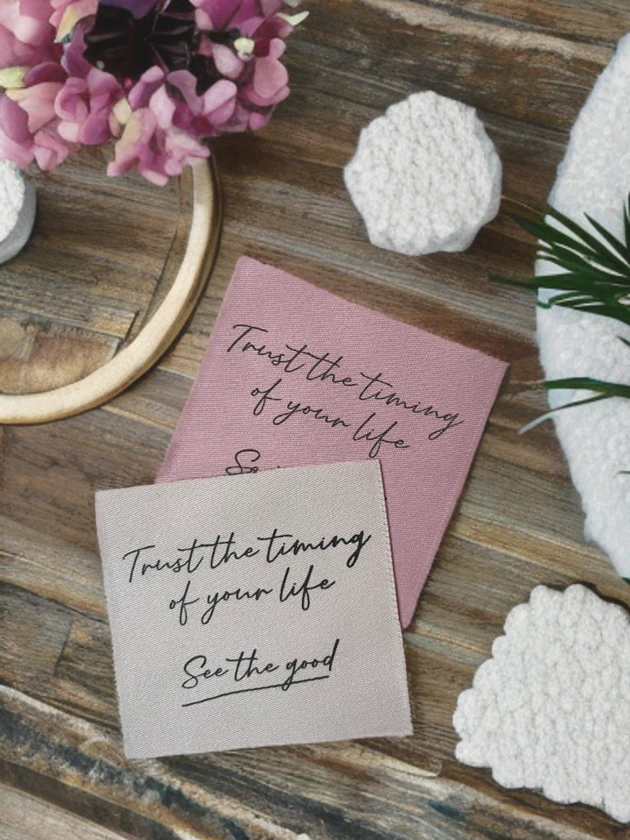 Trust the timing
of your life
Trust the timing
of your life
See the good